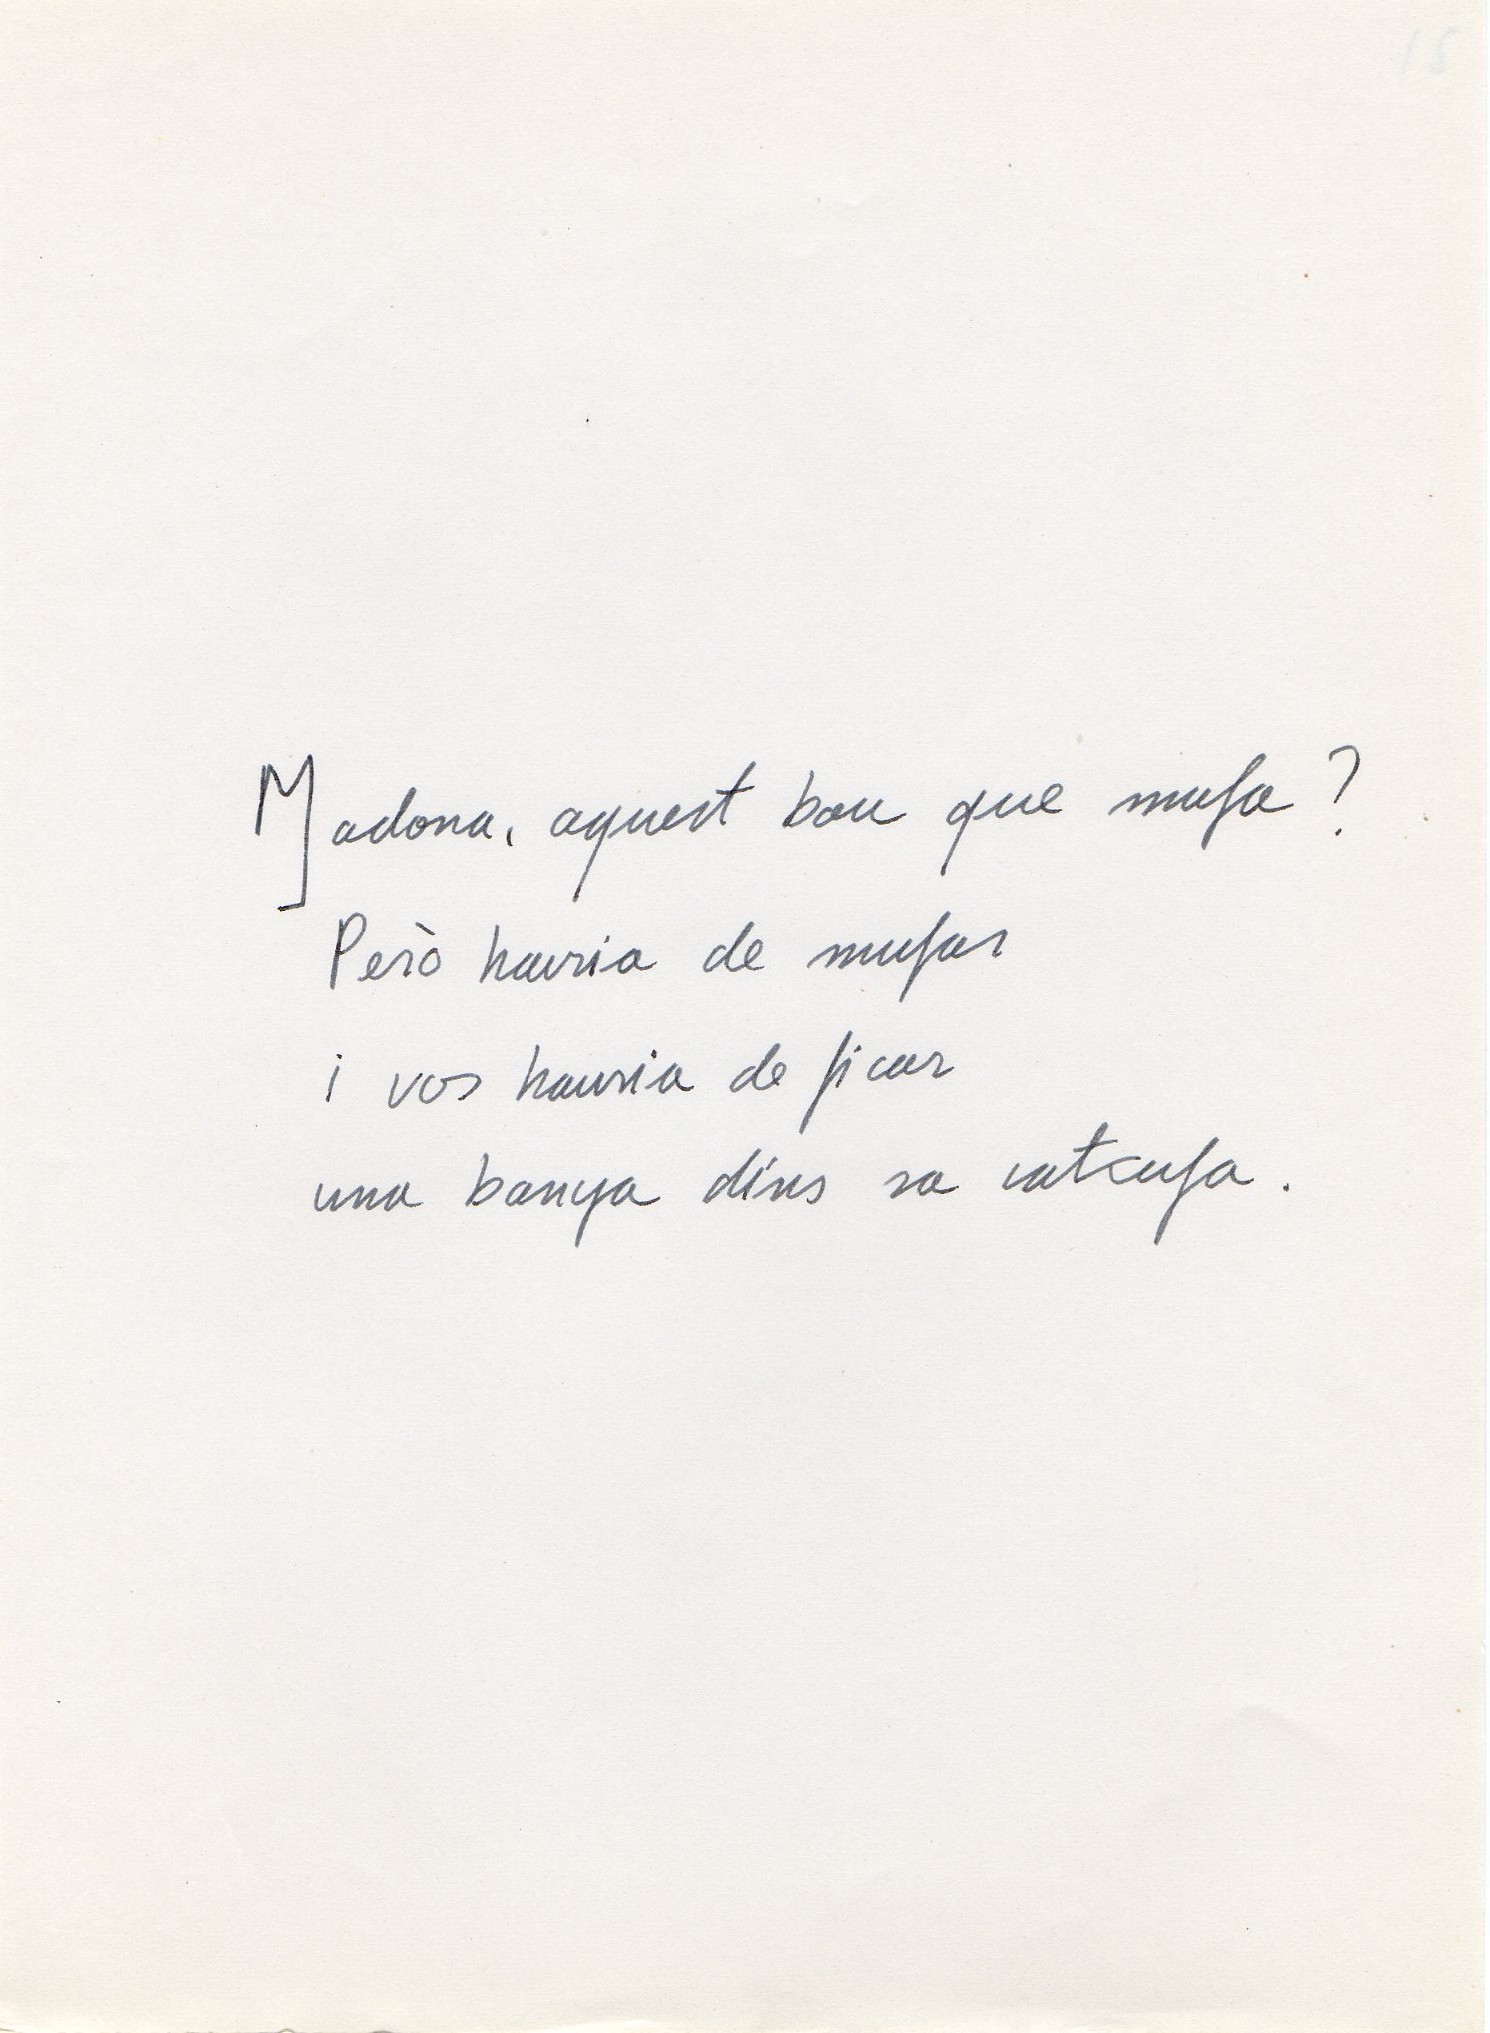 Madona, aquest bou que mufa?
Però hauria de mufar
i vos hauria de ficar
una banya dins sa catxufa.